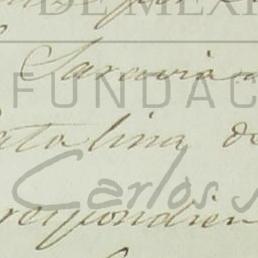 DE MÉXI
Saravia
FUNDAC
atalina de
Carlos
respondien